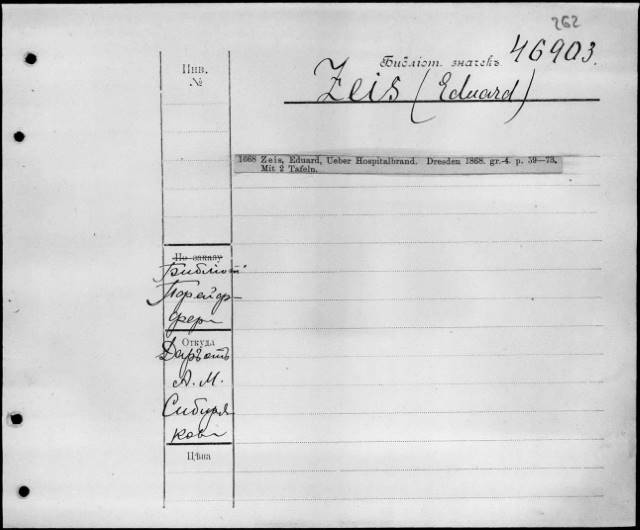 262
Библіот. значекъ 46903.
Zeis (Eduard)
Инв.
№
1668 Zeis, Eduard, Ueber Hospitalbrand. Dresden 1868. gr.-4. p. 39—73.
Mit 2 Tafeln.
По заказу
Библіот
Порейф-
фера
Откуда
Даръ отъ
А. М.
Сибиря
кова
Цѣна